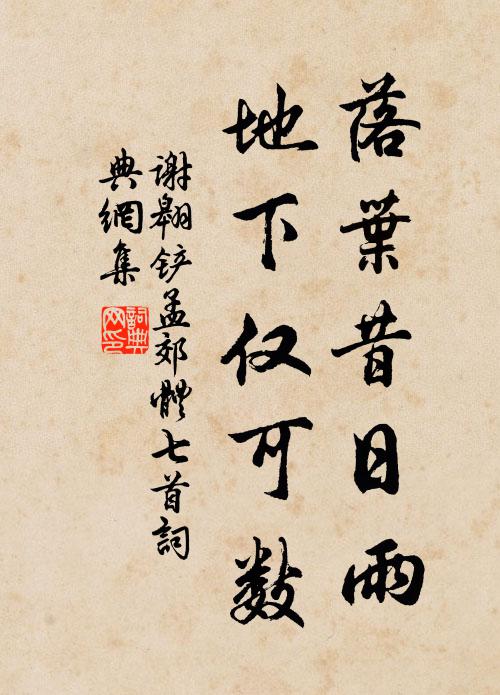 落葉昔日雨
地下仅可数
谢翱铲孟郊體七首詞
典網集
詞典
网印